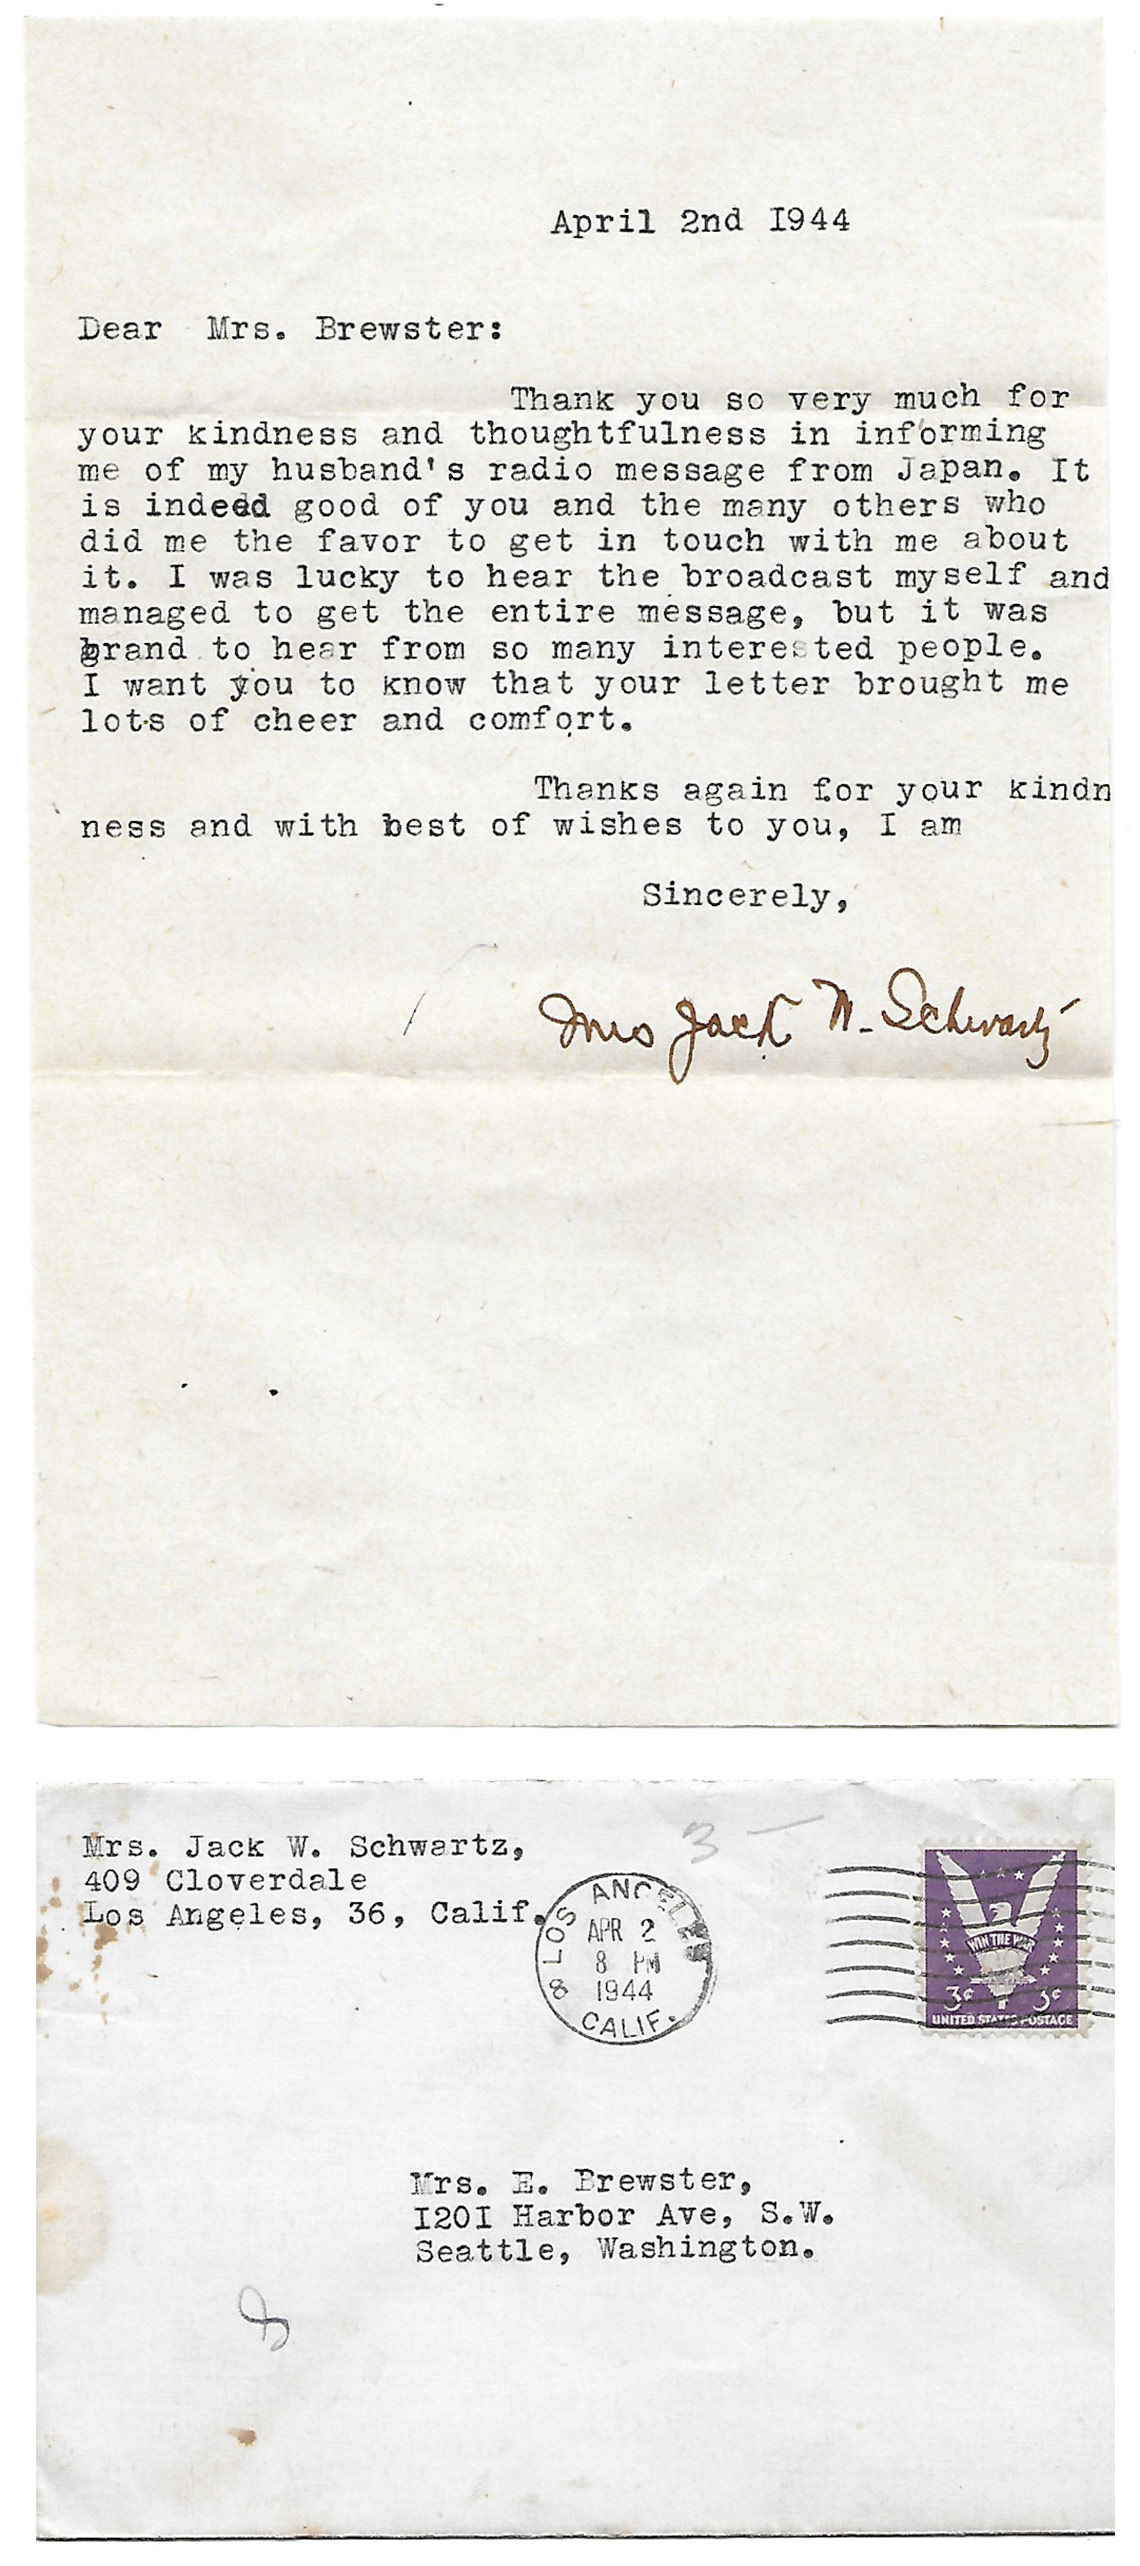 April 2nd I944
Dear Mrs. Brewster:
Thank you so very much for
your kindness and thoughtfulness in informing
me of my husband's radio message from Japan. It
is indeed good of you and the many others who
did me the favor to get in touch with me about
it. I was lucky to hear the broadcast myself and
managed to get the entire message, but it was
grand to hear from so many interested people.
I want you to know that your letter brought me
lots of cheer and comfort.
Thanks again for your kindn
ness and with best of wishes to you, I am
Sincerely,
Mrs Jack W. Schwartz
Mrs. Jack W. Schwartz,
409 Cloverdale
Los Angeles, 36, Calif.
3
LOS ANGELES
APR 2
8 PM
1944
CALIF.
8
WIN THE WAR
3¢ 3¢
UNITED STATES POSTAGE
Mrs. E. Brewster,
I20I Harbor Ave, S.W.
Seattle, Washington.